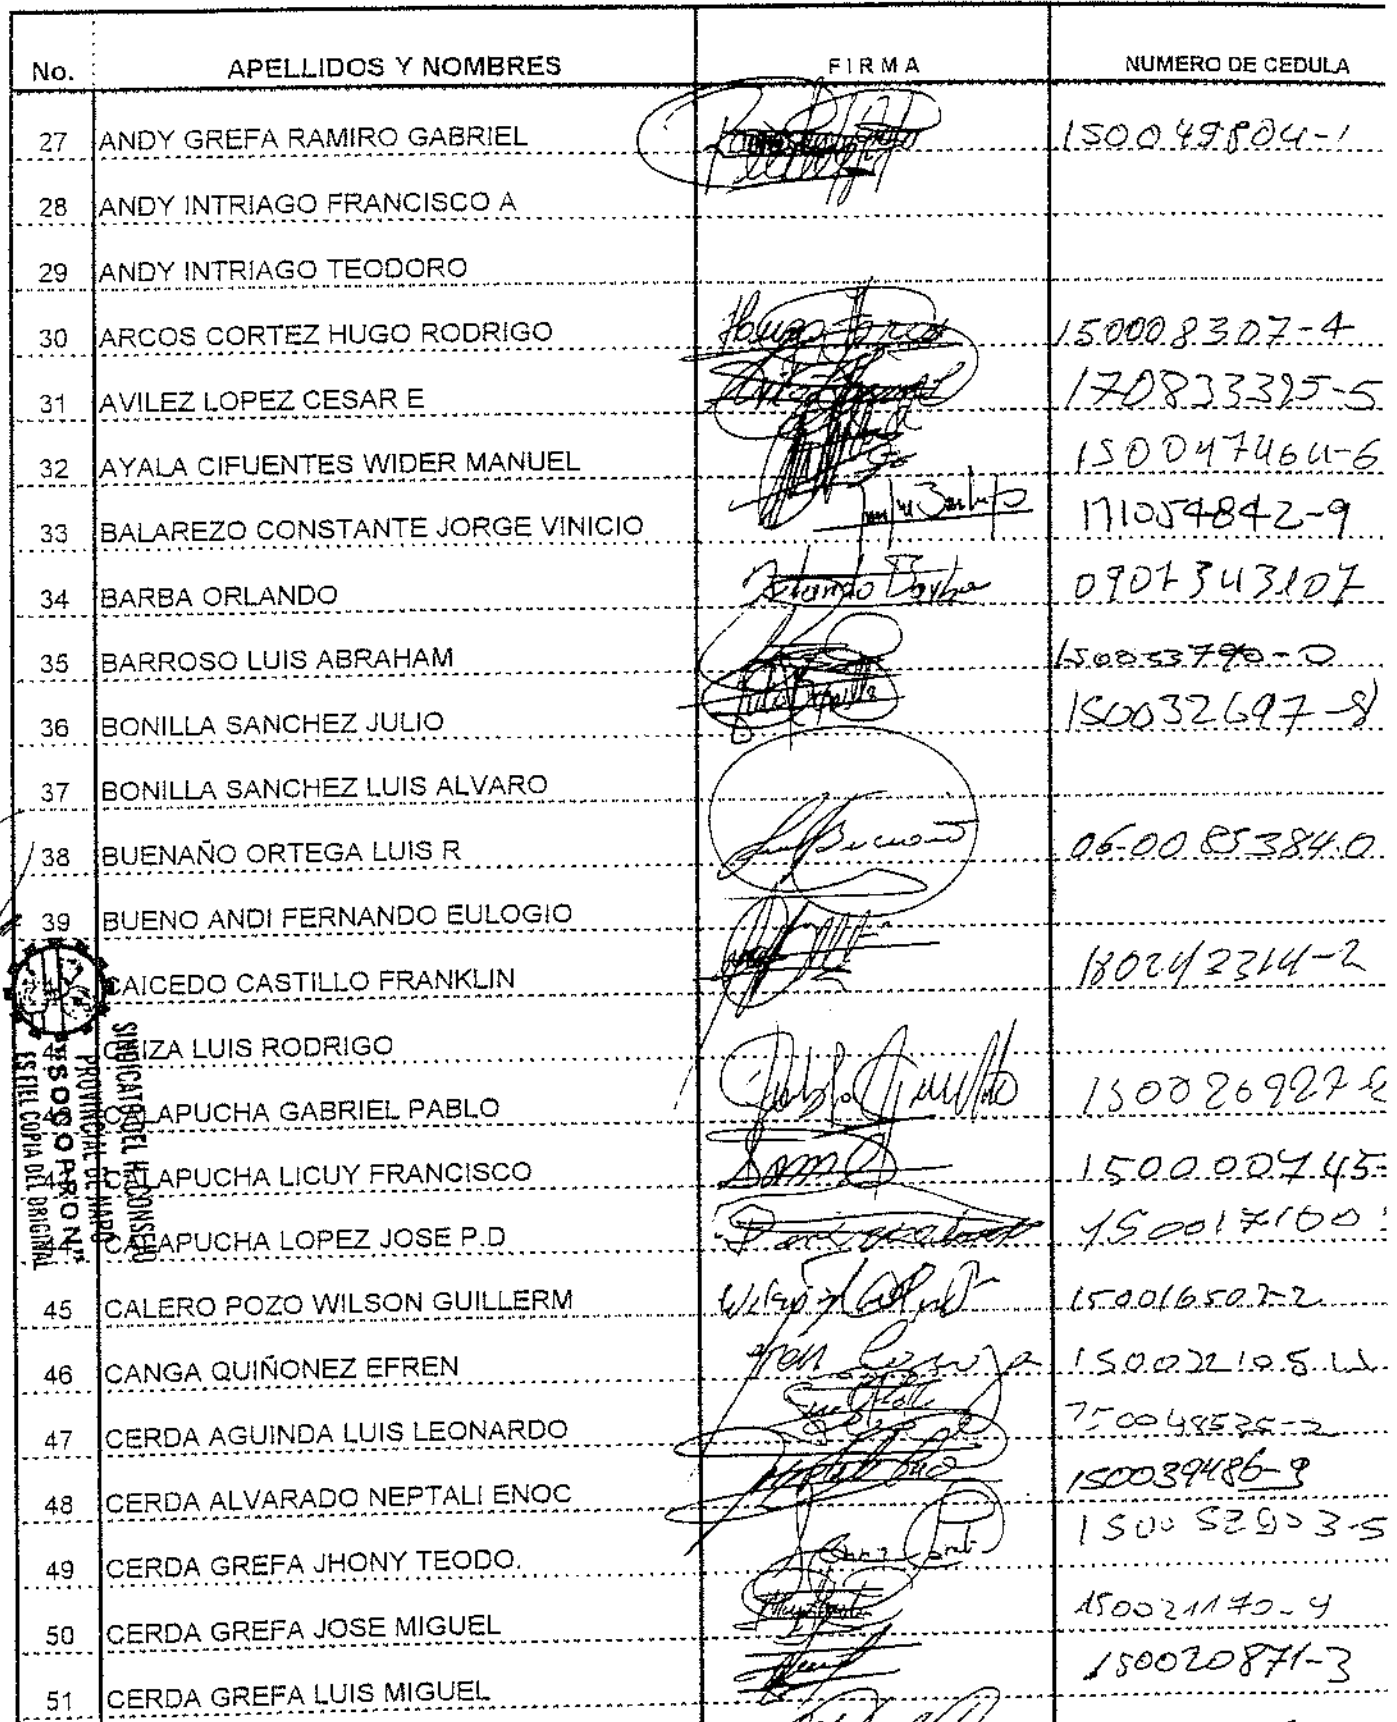 No. APELLIDOS Y NOMBRES FIRMA NUMERO DE CEDULA
27 ANDY GREFA RAMIRO GABRIEL 150049804-1
28 ANDY INTRIAGO FRANCISCO A
29 ANDY INTRIAGO TEODORO
30 ARCOS CORTEZ HUGO RODRIGO 150008307-4
31 AVILEZ LOPEZ CESAR E 170833395-5
32 AYALA CIFUENTES WIDER MANUEL 150047464-6
33 BALAREZO CONSTANTE JORGE VINICIO 171054842-9
34 BARBA ORLANDO Orlando Barba 0907343107
35 BARROSO LUIS ABRAHAM 150033790-0
36 BONILLA SANCHEZ JULIO 150032697-8
37 BONILLA SANCHEZ LUIS ALVARO
38 BUENAÑO ORTEGA LUIS R 06-0085384.0
39 BUENO ANDI FERNANDO EULOGIO
CAICEDO CASTILLO FRANKLIN 180242314-2
LUIS RODRIGO
CALAPUCHA GABRIEL PABLO 150026927
CALAPUCHA LICUY FRANCISCO 150000745-
CALAPUCHA LOPEZ JOSE P.D 150017100
45 CALERO POZO WILSON GUILLERM 150016507-2
46 CANGA QUIÑONEZ EFREN 150022105-4
47 CERDA AGUINDA LUIS LEONARDO 150048535-2
48 CERDA ALVARADO NEPTALI ENOC 150039486-9
49 CERDA GREFA JHONY TEODO. 150052903-5
50 CERDA GREFA JOSE MIGUEL 150021170-4
51 CERDA GREFA LUIS MIGUEL 150020871-3
SINDICATO DEL H. CONSEJO
PROVINCIAL DE NAPO
ES FIEL COPIA DEL ORIGINAL